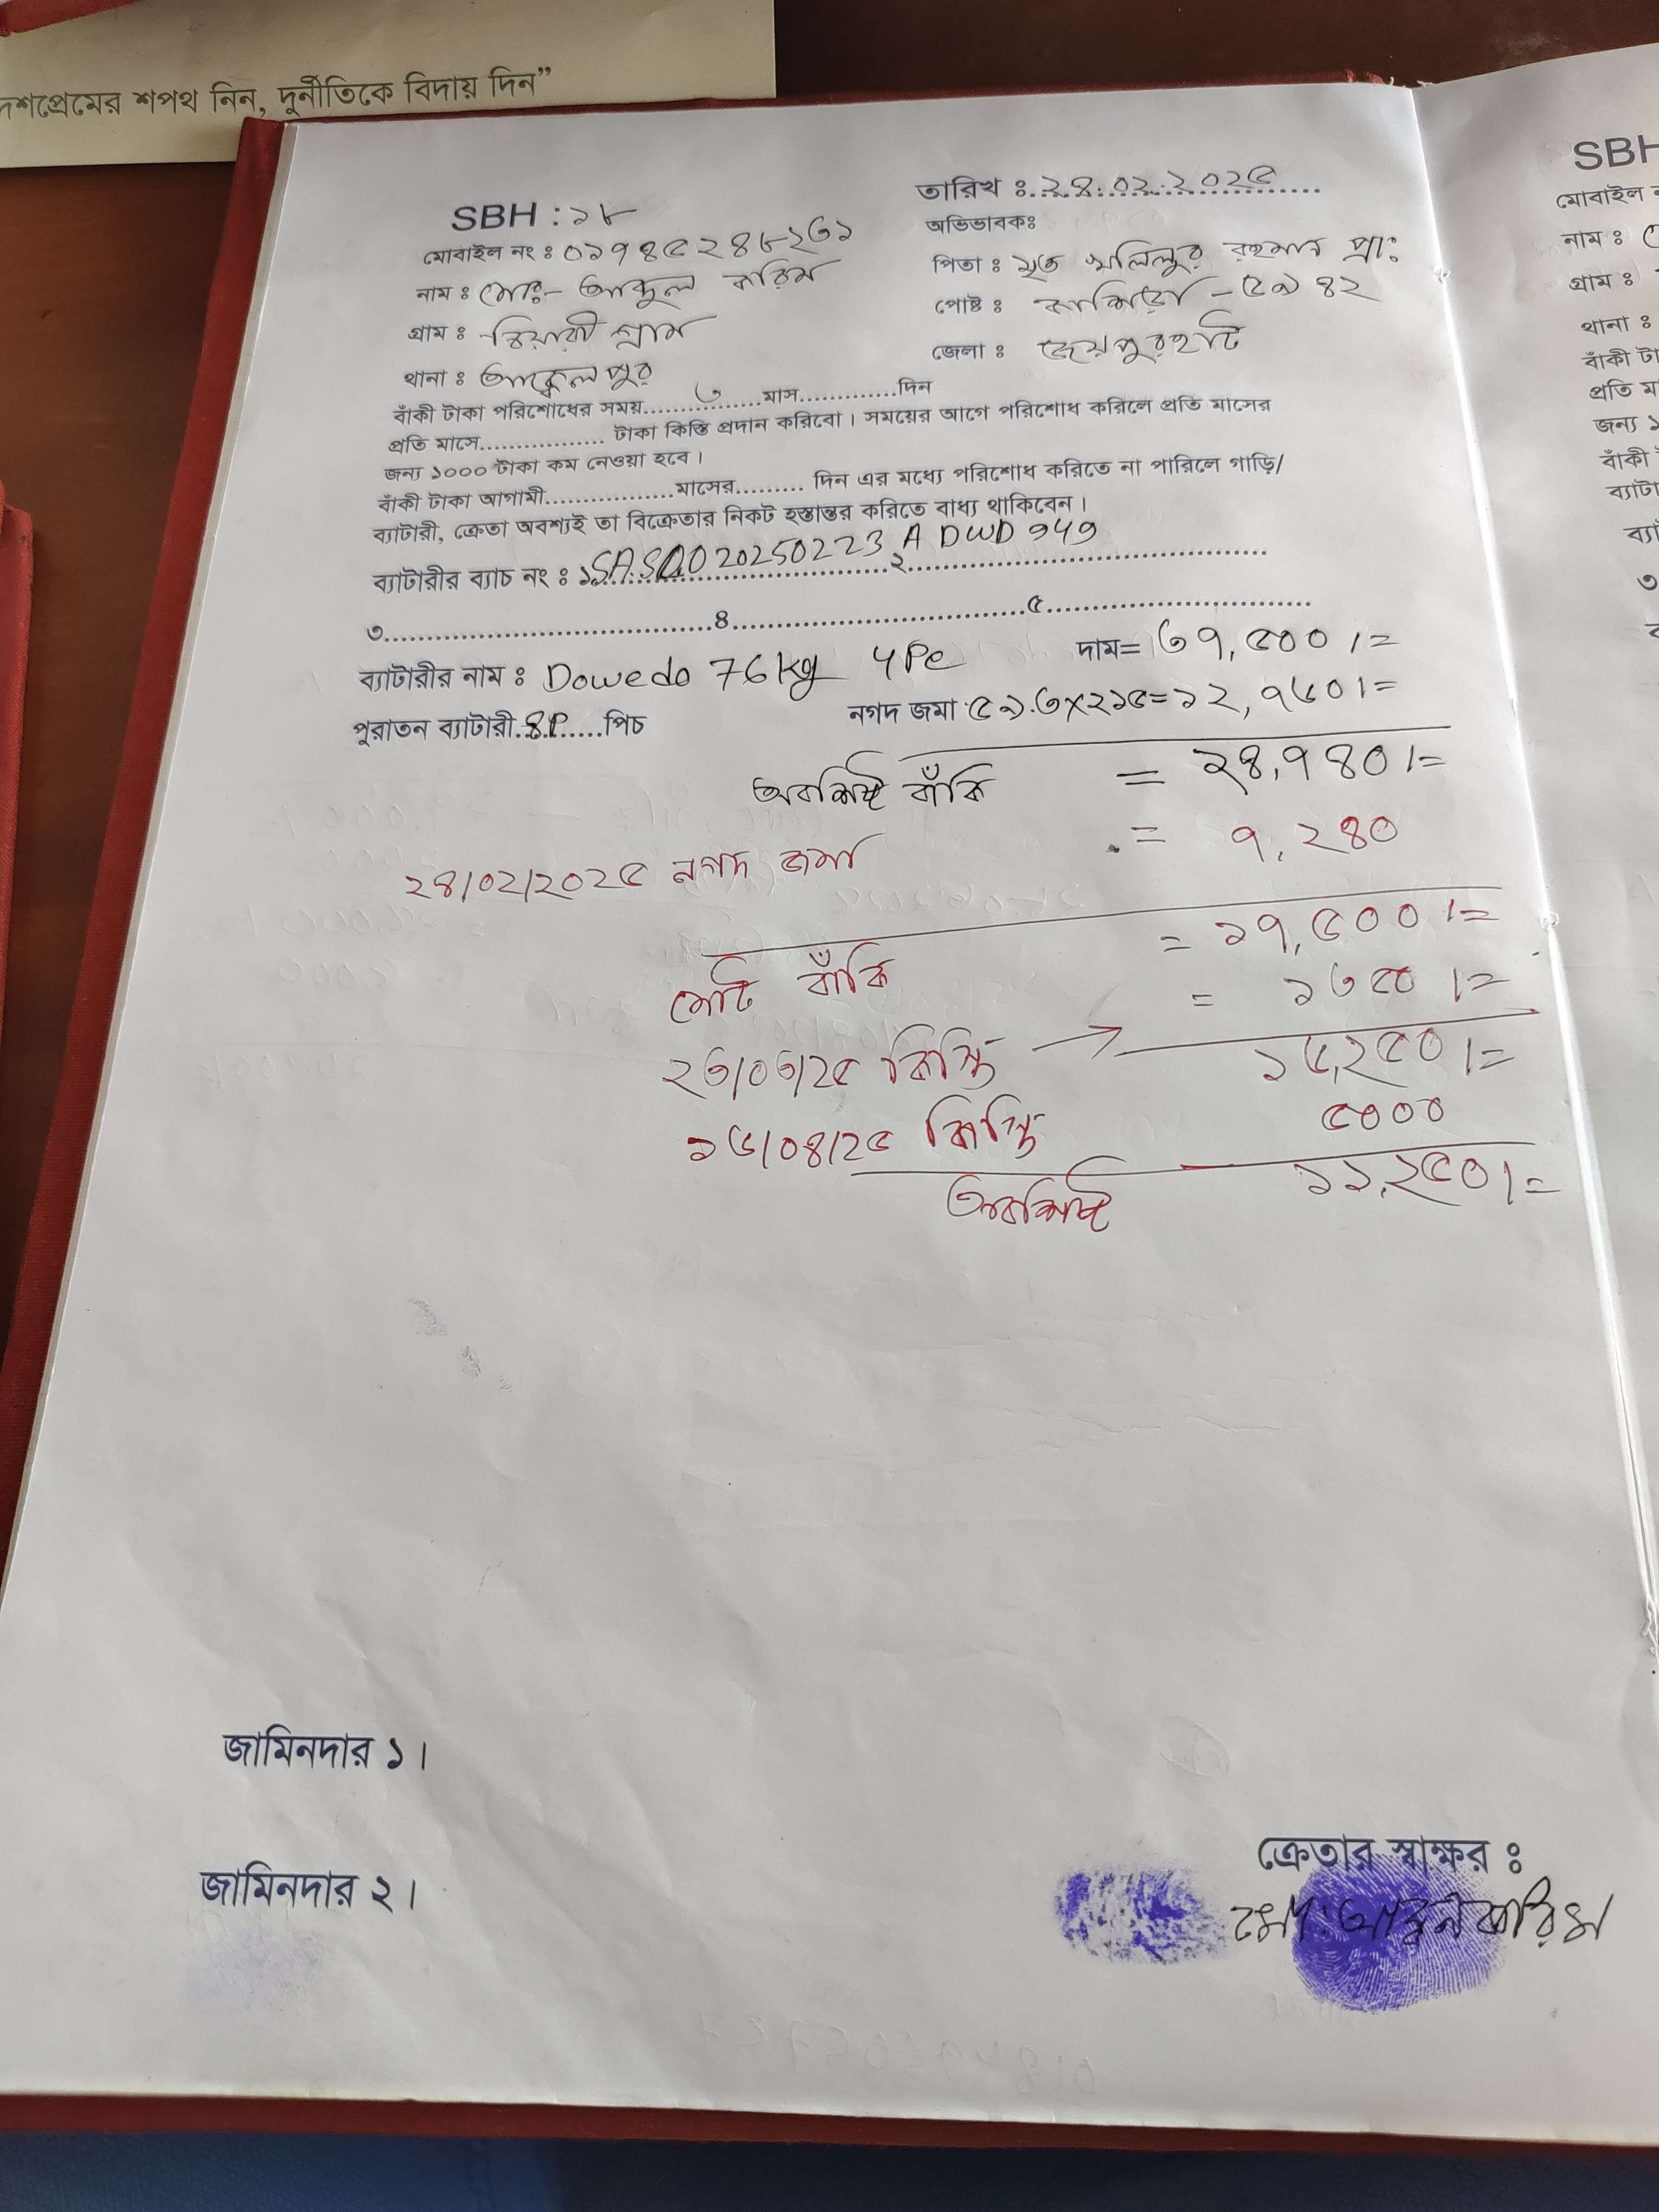 দেশপ্রেমের শপথ নিন, দুর্নীতিকে বিদায় দিন”
SBH : ১৮
তারিখ ঃ ২৪.০২.২০২৫
মোবাইল নং ঃ ০১৭৪৫২৪৮২৩১
অভিভাবকঃ
নাম ঃ মোঃ- আব্দুল করিম
পিতা ঃ মৃত খলিলুর রহমান প্রাং
গ্রাম ঃ গ্রাম
পোষ্ট ঃ - ৫৯৪২
থানা ঃ আক্কেলপুর
জেলা ঃ জয়পুরহাট
বাঁকী টাকা পরিশোধের সময়...৩...মাস.............দিন
প্রতি মাসে................. টাকা কিস্তি প্রদান করিবো। সময়ের আগে পরিশোধ করিলে প্রতি মাসের
জন্য ১০০০ টাকা কম নেওয়া হবে।
বাঁকী টাকা আগামী..................মাসের......... দিন এর মধ্যে পরিশোধ করিতে না পারিলে গাড়ি/
ব্যাটারী, ক্রেতা অবশ্যই তা বিক্রেতার নিকট হস্তান্তর করিতে বাধ্য থাকিবেন।
ব্যাটারীর ব্যাচ নং ঃ ১ 20250223 A DWD ২
৩....................................8....................................৫....................................
ব্যাটারীর নাম ঃ Dowedo 76 kg 4 Pc দাম= ৩৭,৫০০/=
পুরাতন ব্যাটারী..8P......পিচ নগদ জমা ৫৯.৩x২১৫=১২,৭৬০/=
অবশিষ্ট বাঁকি = ২৪,৭৪০/=
২৪/০২/২০২৫ নগদ জমা = ৭,২৪০
মোট বাঁকি = ১৭,৫০০/=
= ১৩৫০/=
২৩/০৩/২৫ কিস্তি → ১৬,২৫০/=
১৬/০৪/২৫ কিস্তি ৫০০০
অবশিষ্ট ১১,২৫০/=
জামিনদার ১।
জামিনদার ২।
ক্রেতার স্বাক্ষর ঃ
মোঃ আব্দুল করিম
SBH
নাম ঃ
গ্রাম ঃ
থানা ঃ